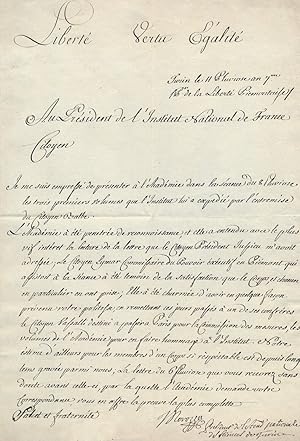 Liberté Vertu Égalité
Turin le 11 Pluviose an 7.me
1.er de la Liberté Piemontoise
Au Président de l'Institut National de France
Citoyen
Je me suis empressé de présenter à l'Académie dans la séance du Pluviose
les trois premiers volumes que l'Institut lui a expédié par l'entremise
du citoyen Balbe.
L'Académie a été penetrée de reconnoissance et elle a entendu avec le plus
vif intéret la lecture de la lettre que le Citoyen Président Jussieu m'avoit
adressée. Le Citoyen Eymar Commissaire du Pouvoir Exécutif en Piémont qui
assistoit à la séance a été temoin de la satisfaction que le Corps et chacun
en particulier en ont prise; Elle a été charmée d'avoir en quelque façon
prevenu votre politesse en remettant ces jours passés à un de ses confrères
le citoyen Vassalli destiné à passer à Paris pour la Commission des mesures, les
volumes de l'Académie pour en faire hommage à l'Institut. Notre
estime d'ailleurs pour les membres d'un Corps si respectable est depuis longtems
gravée parmi nous. La lettre d'Officiau que vous recevrez sans
doute avant celle-ci, par la quelle l'Académie demande votre
Correspondance vous en offre la preuve la plus complette.
Salut et fraternité